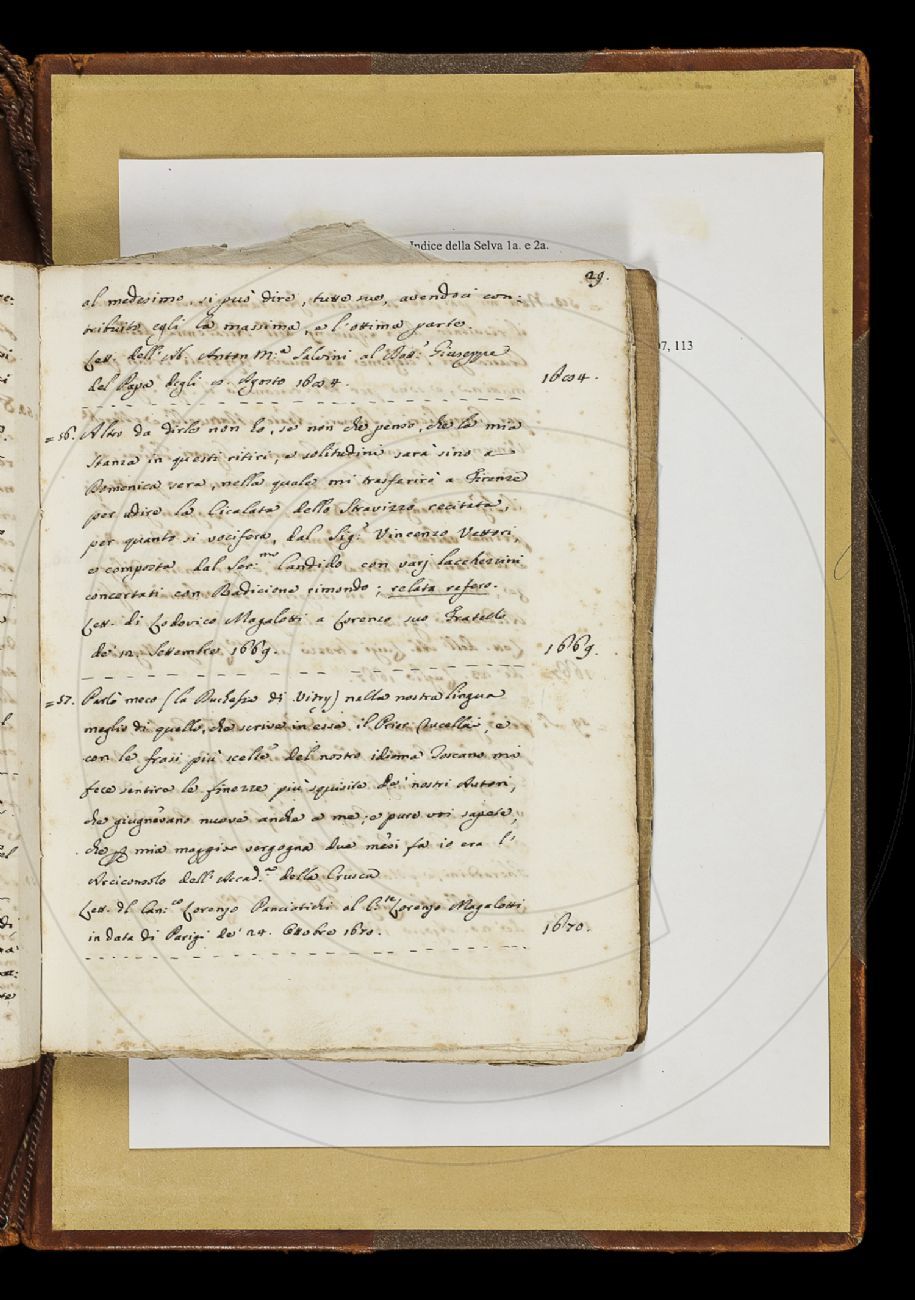 Indice della Selva 1a. e 2a.
07, 113
29.
al medesimo, si può dire, tutto suo, avendoci con:
tribuito egli la massima, e l'ottima parte.
Lett. dell'Ab. Anton M.ª Salvini al Dott.r Giuseppe
del Papa degli Agosto
= 56. Altro da dirle non ho, se non che penso, che la mia
stanza in questi ritiri, e solitudini sarà sino a
Domenica sera, nella quale mi trasferirò a Firenze
per udire la Cicalata dello Stravizzo recitata,
per quanto si vocifera, dal Sig.r Vincenzo Vettori,
e composta dal Ser.mo Candido con varj lacchezzini
concertati con Badicione rimondo; relata refero.
Lett. di Lodovico Magalotti a Lorenzo suo Fratello
de' 12. Settembre 1669.
1669.
= 57. Parlò meco (la Duchessa di Vitry) nella nostra lingua
meglio di quello, che scrive in essa il Prior Rucellai, e
con le frasi più scelte del nostro idioma Toscano mi
fece sentire le finezze più squisite de' nostri Autori,
che giugnevano nuove anche a me; e pure voi sapete,
che per mia maggior vergogna due mesi fa io era l'
Arciconsolo dell'Accad.ª della Crusca
Lett. del Can.co Lorenzo Panciatichi al C.te Lorenzo Magalotti
in data di Parigi de' 24. Ottobre 1670.
1670.